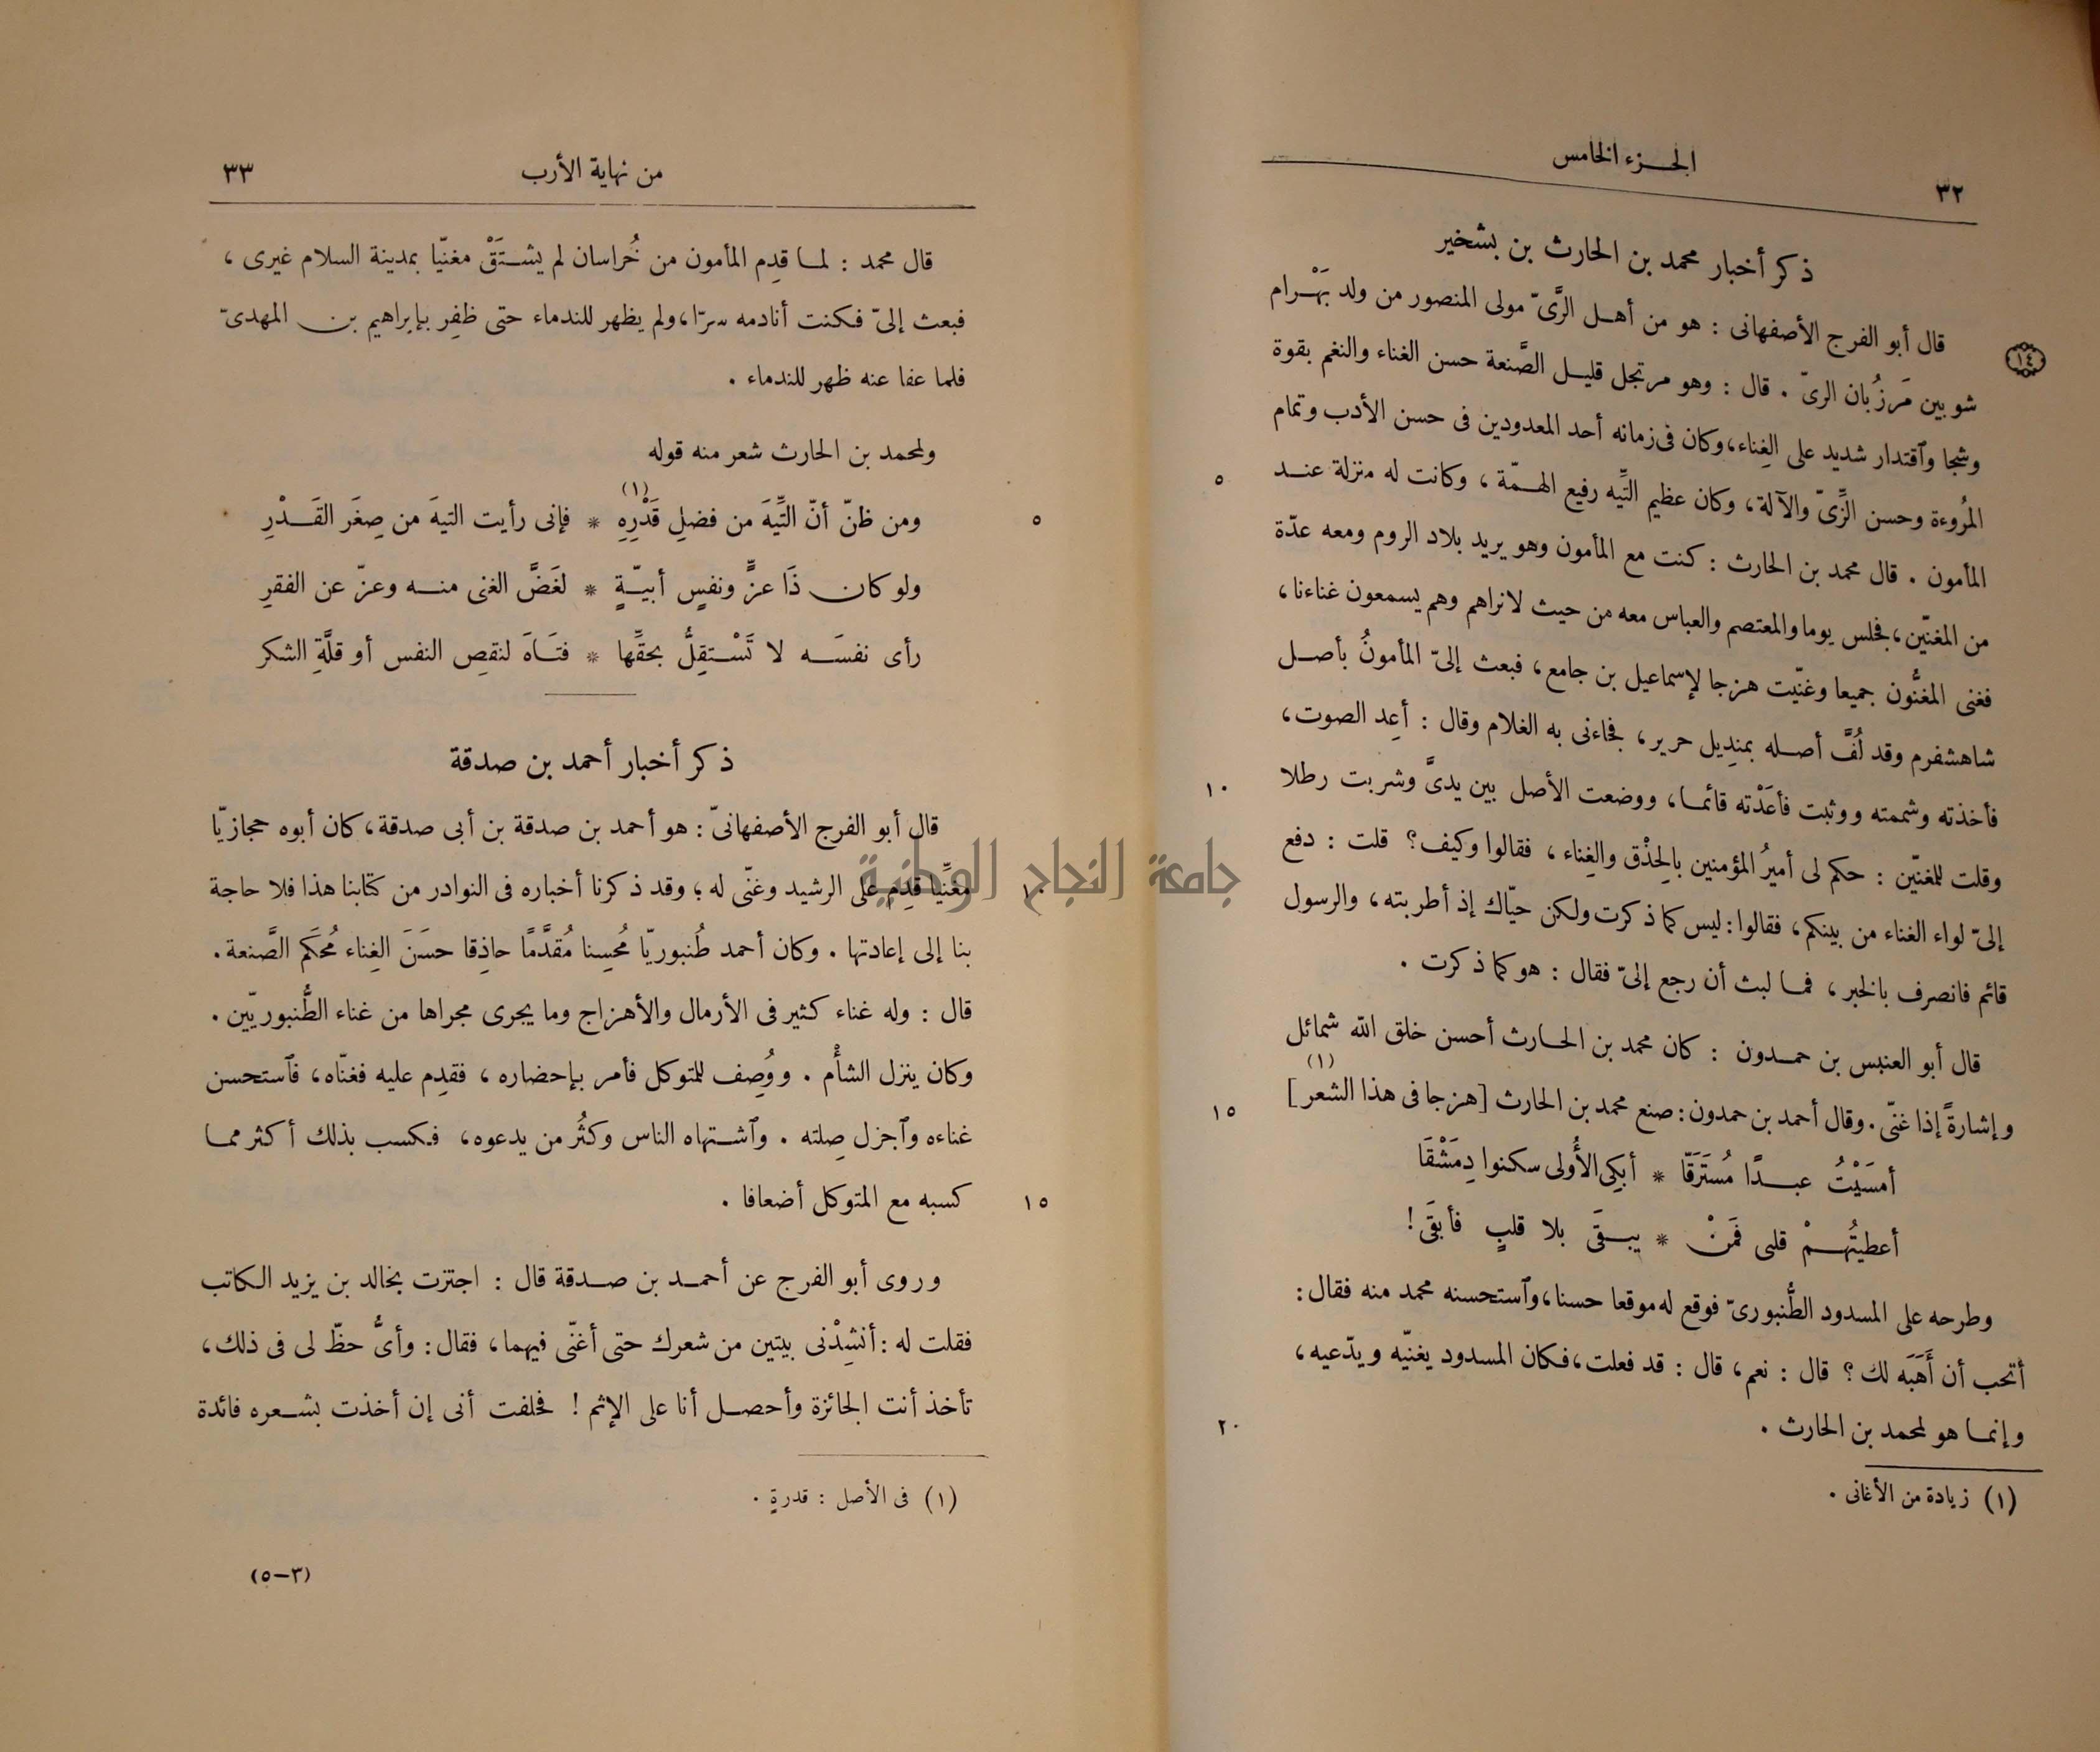 الجزء الخامس
٣٢
ذكر أخبار محمد بن الحارث بن بشخير
قال أبو الفرج الأصفهانى : هو من أهل الرَّىّ مولى المنصور من ولد بَهْرام
١٤
شوبين مَرزُبان الرىّ . قال : وهو مرتجل قليل الصَّنعة حسن الغناء والنغم بقوة
وشجا وٱقتدار شديد على الغِناء، وكان فى زمانه أحد المعدودين فى حسن الأدب وتمام
المرُوءة وحسن الزِّىّ والآلة، وكان عظيم التِّيه رفيع الهمّة ، وكانت له منزلة عند
٥
المأمون . قال محمد بن الحارث : كنت مع المأمون وهو يريد بلاد الروم ومعه عدّة
من المغنّين، فجلس يوما والمعتصم والعباس معه من حيث لا نراهم وهم يسمعون غناءنا،
فغنى المغنُّون جميعا وغنّيت هزجا لإسماعيل بن جامع، فبعث إلىّ المأمونُ بأصل
شاهشفرم وقد لُفَّ أصله بمنديل حرير، فجاءنى به الغلام وقال : أعِد الصوت،
فأخذته وشممته ووثبت فأعَدْته قائما، ووضعت الأصل بين يدىَّ وشربت رطلا
١٠
وقلت للمغنّين : حكم لى أميرُ المؤمنين بالحِذْق والغِناء ، فقالوا وكيف؟ قلت : دفع
إلىّ لواء الغناء من بينكم، فقالوا: ليس كما ذكرت ولكن حيّاك إذ أطربته، والرسول
قائم فانصرف بالخبر، فما لبث أن رجع إلىّ فقال : هو كما ذكرت .
قال أبو العنبس بن حمدون : كان محمد بن الحارث أحسن خلق الله شمائل
وإشارةً إذا غنّى. وقال أحمد بن حمدون: صنع محمد بن الحارث [هزجا فى هذا الشعر] (١)
١٥
أمسَيْتُ عبدًا مُستَرَقّا * أبكِى الأُولى سكنوا دِمَشْقَا
أعطيتُهمْ قلبى فَمَنْ * يبقَى بلا قلبٍ فأبقَى!
وطرحه على المسدود الطُّنبورىّ فوقع له موقعا حسنا، وٱستحسنه محمد منه فقال:
أتحب أن أَهَبَه لك؟ قال : نعم، قال : قد فعلت، فكان المسدود يغنّيه ويدّعيه،
وإنما هو لمحمد بن الحارث .
٢٠
(١) زيادة من الأغانى .
من نهاية الأرب
٣٣
قال محمد : لما قدِم المأمون من خُراسان لم يشتَقْ مغنّيا بمدينة السلام غيرى،
فبعث إلىّ فكنت أنادمه سرّا، ولم يظهر للندماء حتى ظفِر بإبراهيم بن المهدىّ
فلما عفا عنه ظهر للندماء .
ولمحمد بن الحارث شعر منه قوله
ومن ظنّ أنّ التِّيهَ من فضلِ قَدْرِهِ (١) * فإنى رأيت التيهَ من صِغَر القَدْرِ
٥
ولو كان ذَا عزٍّ ونفسٍ أبيّةٍ * لغَضَّ الغنى منه وعزّ عن الفقرِ
رأى نفسَه لا تَسْتقِلُّ بحقِّها * فتَاهَ لنقصِ النفس أو قلَّةِ الشكر
ذكر أخبار أحمد بن صدقة
قال أبو الفرج الأصفهانىّ : هو أحمد بن صدقة بن أبى صدقة، كان أبوه حجازيّا
مغنِّيا قدِم على الرشيد وغنّى له؛ وقد ذكرنا أخباره فى النوادر من كتابنا هذا فلا حاجة
١٠
بنا إلى إعادتها . وكان أحمد طُنبوريّا مُحسِنا مُقدَّمًا حاذِقا حسَنَ الغِناء مُحكَم الصَّنعة.
قال : وله غناء كثير فى الأرمال والأهزاج وما يجرى مجراها من غناء الطُّنبوريّين.
وكان ينزل الشأْم . ووُصِف للمتوكل فأمر بإحضاره ، فقدِم عليه فغنّاه، فٱستحسن
غناءه وٱجزل صِلته . وٱشتهاه الناس وكثُر من يدعوه، فكسب بذلك أكثر مما
كسبه مع المتوكل أضعافا .
١٥
وروى أبو الفرج عن أحمد بن صدقة قال : اجتزت بخالد بن يزيد الكاتب
فقلت له : أنشِدْنى بيتين من شعرك حتى أغنّى فيهما، فقال : وأىُّ حظّ لى فى ذلك،
تأخذ أنت الجائزة وأحصل أنا على الإثم ! فحلفت أنى إن أخذت بشعره فائدة
(١) فى الأصل : قدرةٍ .
(٣-٥)
جامعة النجاح الوطنية